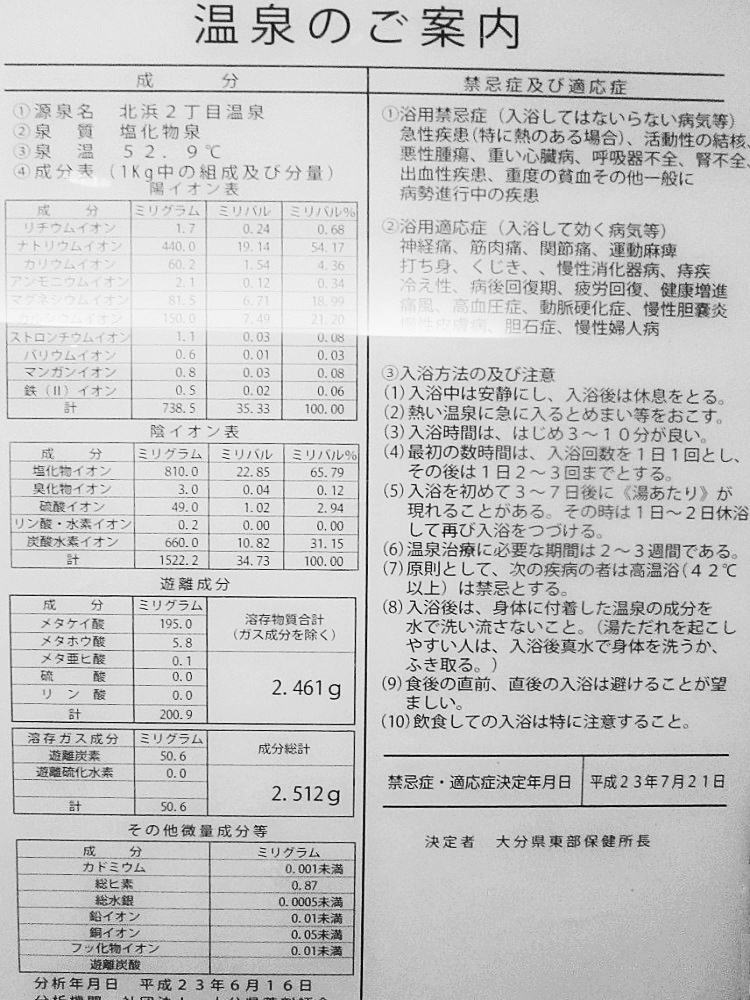 温泉のご案内
成　　分
①源泉名　北浜２丁目温泉
②泉　質　塩化物泉
③泉　温　５２．９℃
④成分表（１Kg中の組成及び分量）
陽イオン表
成　分　ミリグラム　ミリバル　ミリバル%
リチウムイオン　1.7　0.24　0.68
ナトリウムイオン　440.0　19.14　54.17
カリウムイオン　60.2　1.54　4.36
アンモニウムイオン　2.1　0.12　0.34
マグネシウムイオン　81.5　6.71　18.99
カルシウムイオン　150.0　7.49　21.20
ストロンチウムイオン　1.1　0.03　0.08
バリウムイオン　0.6　0.01　0.03
マンガンイオン　0.8　0.03　0.08
鉄（II）イオン　0.5　0.02　0.06
計　738.5　35.33　100.00
陰イオン表
成　分　ミリグラム　ミリバル　ミリバル%
塩化物イオン　810.0　22.85　65.79
臭化物イオン　3.0　0.04　0.12
硫酸イオン　49.0　1.02　2.94
リン酸・水素イオン　0.2　0.00　0.00
炭酸水素イオン　660.0　10.82　31.15
計　1522.2　34.73　100.00
遊離成分
成　分　ミリグラム
メタケイ酸　195.0
メタホウ酸　5.8
メタ亜ヒ酸　0.1
硫　酸　0.0
リ　ン　酸　0.0
計　200.9
溶存物質合計
（ガス成分を除く）
2.461g
溶存ガス成分　ミリグラム
遊離炭素　50.6
遊離硫化水素　0.0
計　50.6
成分総計
2.512g
その他微量成分等
成　分　ミリグラム
カドミウム　0.001未満
総ヒ素　0.87
総水銀　0.0005未満
鉛イオン　0.01未満
銅イオン　0.05未満
フッ化物イオン　0.01未満
遊離炭酸
分析年月日　平成２３年６月１６日
禁忌症及び適応症
①浴用禁忌症（入浴してはないらない病気等）
急性疾患(特に熱のある場合)、活動性の結核、
悪性腫瘍、重い心臓病、呼吸器不全、腎不全、
出血性疾患、重度の貧血その他一般に
病勢進行中の疾患
②浴用適応症（入浴して効く病気等）
神経痛、筋肉痛、関節痛、運動麻痺
打ち身、くじき、、慢性消化器病、痔疾
冷え性、病後回復期、疲労回復、健康増進
痛風、高血圧症、動脈硬化症、慢性胆嚢炎
慢性皮膚病、胆石症、慢性婦人病
③入浴方法の及び注意
(1)入浴中は安静にし、入浴後は休息をとる。
(2)熱い温泉に急に入るとめまい等をおこす。
(3)入浴時間は、はじめ３～１０分が良い。
(4)最初の数時間は、入浴回数を１日１回とし、
その後は１日２～３回までとする。
(5)入浴を初めて３～７日後に《湯あたり》が
現れることがある。その時は１日～２日休浴
して再び入浴をつづける。
(6)温泉治療に必要な期間は２～３週間である。
(7)原則として、次の疾病の者は高温浴(４２℃
以上）は禁忌とする。
(8)入浴後は、身体に付着した温泉の成分を
水で洗い流さないこと。（湯ただれを起こし
やすい人は、入浴後真水で身体を洗うか、
ふき取る。）
(9)食後の直前、直後の入浴は避けることが望
ましい。
(10)飲食しての入浴は特に注意すること。
禁忌症・適応症決定年月日　平成２３年７月２１日
決定者　大分県東部保健所長